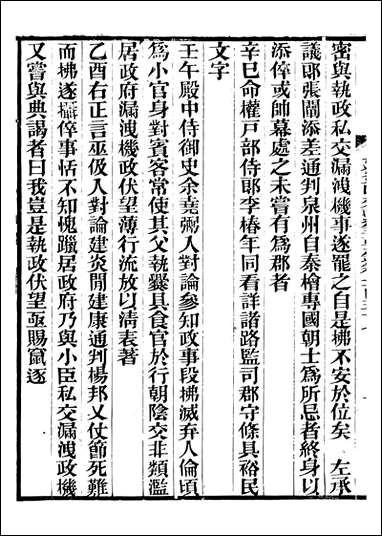 密與執政私交漏洩機事遂罷之自是梻不安於位矣　左承
議郎張闡添差通判泉州自秦檜專國朝士爲所忌者終身以
添倅或帥幕處之未嘗有爲郡者
辛巳命權戸部侍郎李椿年同看詳諸路監司郡守條具裕民
文字
壬午殿中侍御史余堯弼入對論參知政事段梻滅弃人倫頃
爲小官身對賓客常使其父執爨具食官於行朝陰交非類濫
居政府漏洩機政伏望薄行流放以清表著
乙酉右正言巫伋入對論建炎閒建康通判楊邦乂仗節死難
而梻遂攝倅事恬不知愧躐居政府乃與小臣私交漏洩政機
又嘗與典謁者曰我豈是執政伏望亟賜竄逐